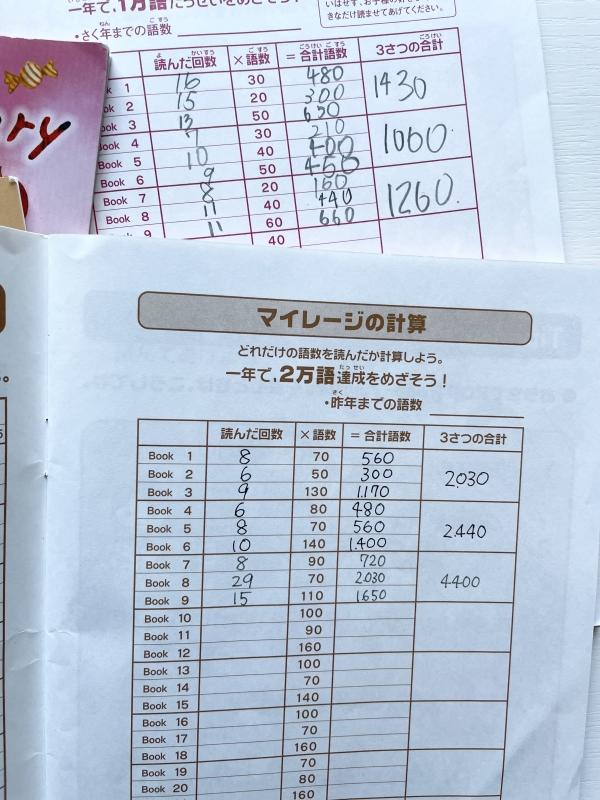 一年で、1万語たっせいをめざそう！
きなだけ読ませてあげてください。
・さく年までの語数
読んだ回数 ×語数 =合計語数 3さつの合計
ook 1 16 30 480
ook 2 15 20 300 1430
ook 3 13 50 650
Book 4 7 30 210
Book 5 10 40 400 1060
Book 6 9 50 450
Book 7 8 20 160
Book 8 11 40 440 1260
9 11 60 660
40
マイレージの計算
どれだけの語数を読んだか計算しよう。
一年で、2万語達成をめざそう！
・昨年までの語数
読んだ回数 ×語数 =合計語数 3さつの合計
Book 1 8 70 560
Book 2 6 50 300 2030
Book 3 9 130 1170
Book 4 6 80 480
Book 5 8 70 560 2440
Book 6 10 140 1.400
Book 7 8 90 720
Book 8 29 70 2030 4400
Book 9 15 110 1650
Book 10 100
Book 11 90
Book 12 160
Book 13 100
Book 14 70
Book 15 140
Book 16 100
Book 17 70
Book 18 160
Book 19 70
Book 20 80
160